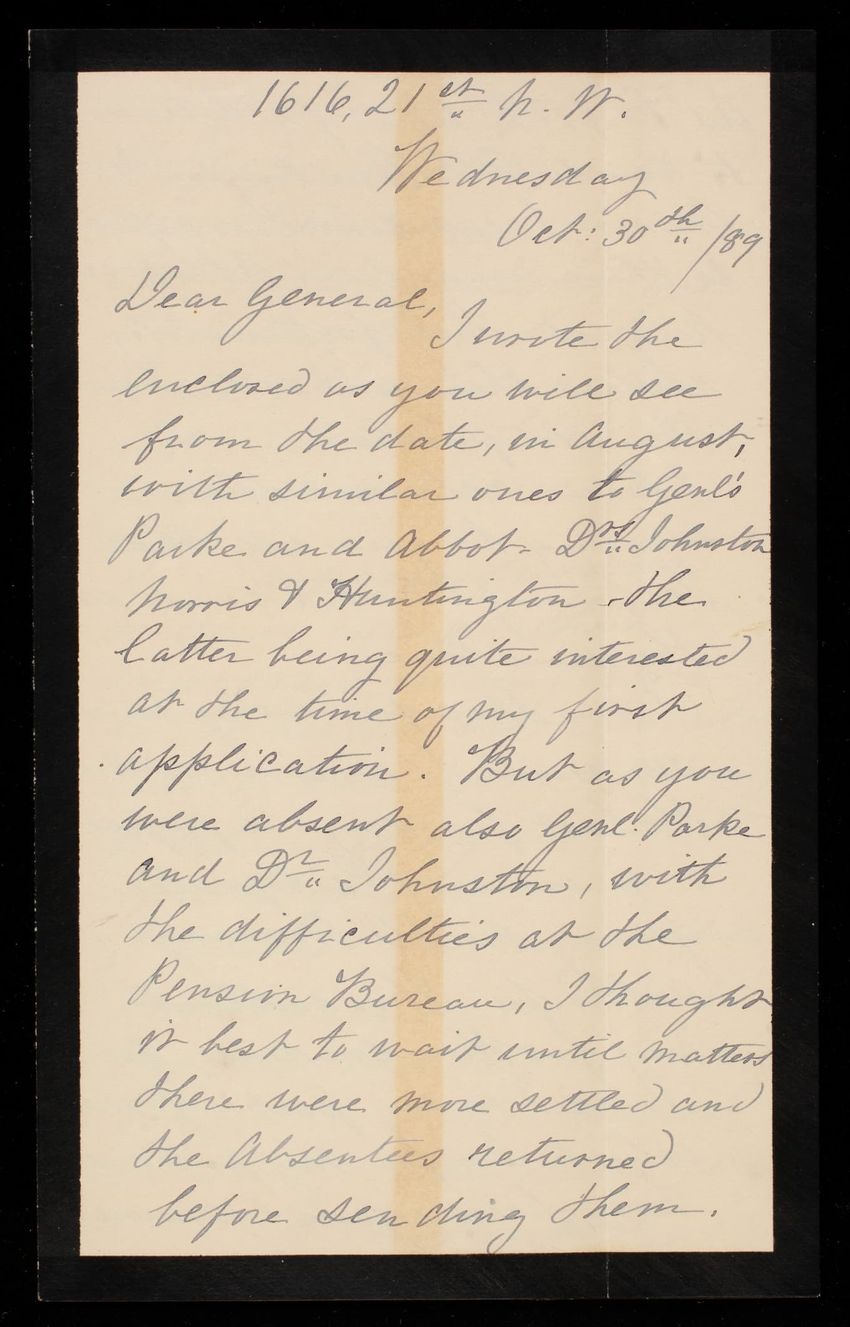 1616, 21st N. W.
Wednesday
Oct: 30th /89
Dear General,
I wrote the
enclosed as you will see
from the date, in August,
with similar ones to Genl's
Parke and Abbot - Drs Johnston
Norris & Huntington - the
latter being quite interested
at the time of my first
application. But as you
were absent also Genl. Parke
and Dr Johnston, with
the difficulties at the
Pension Bureau, I thought
it best to wait until matters
there were more settled and
the Absentees returned
before sending them.